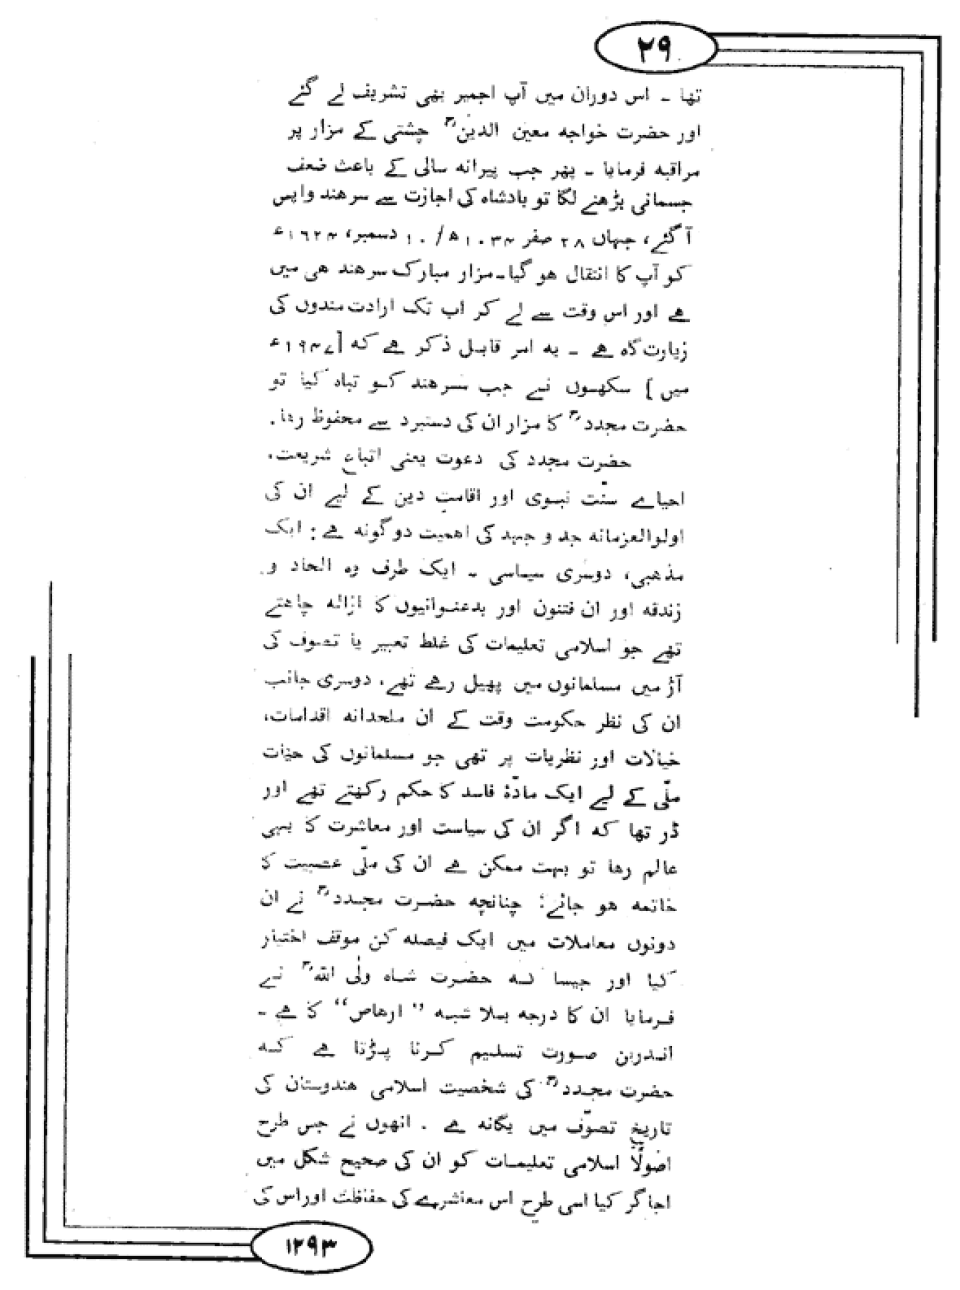 ۲۹
تھا ۔ اس دوران میں آپ اجمیر بھی تشریف لے گئے
اور حضرت خواجہ معین الدینؒ چشتی کے مزار پر
مراقبہ فرمایا ۔ پھر جب پیرانہ سالی کے باعث ضعف
جسمانی بڑھنے لگا تو بادشاہ کی اجازت سے سرھند واپس
آ گئے، جہاں ۲۸ صفر ۱۰۳۴ھ/۱۰ دسمبر، ۱۶۲۴ء
کو آپ کا انتقال ھو گیا۔ مزار مبارک سرھند ھی میں
ھے اور اس وقت سے لے کر اب تک ارادت مندوں کی
زیارت گاہ ھے ۔ یہ امر قابل ذکر ھے کہ [۱۹۴۷ء
میں] سکھوں نے جب سرھند کو تباہ کیا تو
حضرت مجددؒ کا مزار ان کی دستبرد سے محفوظ رھا۔
حضرت مجدد کی دعوت یعنی اتباع شریعت،
احیاے سنّت نبوی اور اقامتِ دین کے لیے ان کی
اولوالعزمانہ جد و جہد کی اھمیت دوگونہ ھے : ایک
مذھبی، دوسری سیاسی ۔ ایک طرف وہ الحاد و
زندقہ اور ان فتنوں اور بدعنوانیوں کا ازالہ چاھتے
تھے جو اسلامی تعلیمات کی غلط تعبیر یا تصوف کی
آڑ میں مسلمانوں میں پھیل رھے تھے، دوسری جانب
ان کی نظر حکومت وقت کے ان ملحدانہ اقدامات،
خیالات اور نظریات پر تھی جو مسلمانوں کی حیات
ملّی کے لیے ایک مادّۂ فاسد کا حکم رکھتے تھے اور
ڈر تھا کہ اگر ان کی سیاست اور معاشرت کا یہی
عالم رھا تو بہت ممکن ھے ان کی ملّی عصبیت کا
خاتمہ ھو جائے؛ چنانچہ حضرت مجددؒ نے ان
دونوں معاملات میں ایک فیصلہ کن موقف اختیار
کیا اور جیسا کہ حضرت شاہ ولی اللہؒ نے
فرمایا ان کا درجہ بلا شبہ ”ارھاص“ کا ھے ۔
اندریں صورت تسلیم کرنا پڑتا ھے کہ
حضرت مجددؒ کی شخصیت اسلامی ھندوستان کی
تاریخِ تصوّف میں یگانہ ھے ۔ انھوں نے جس طرح
اصولًا اسلامی تعلیمات کو ان کی صحیح شکل میں
اجاگر کیا اسی طرح اس معاشرے کی حفاظت اور اس کی
۱۲۹۳